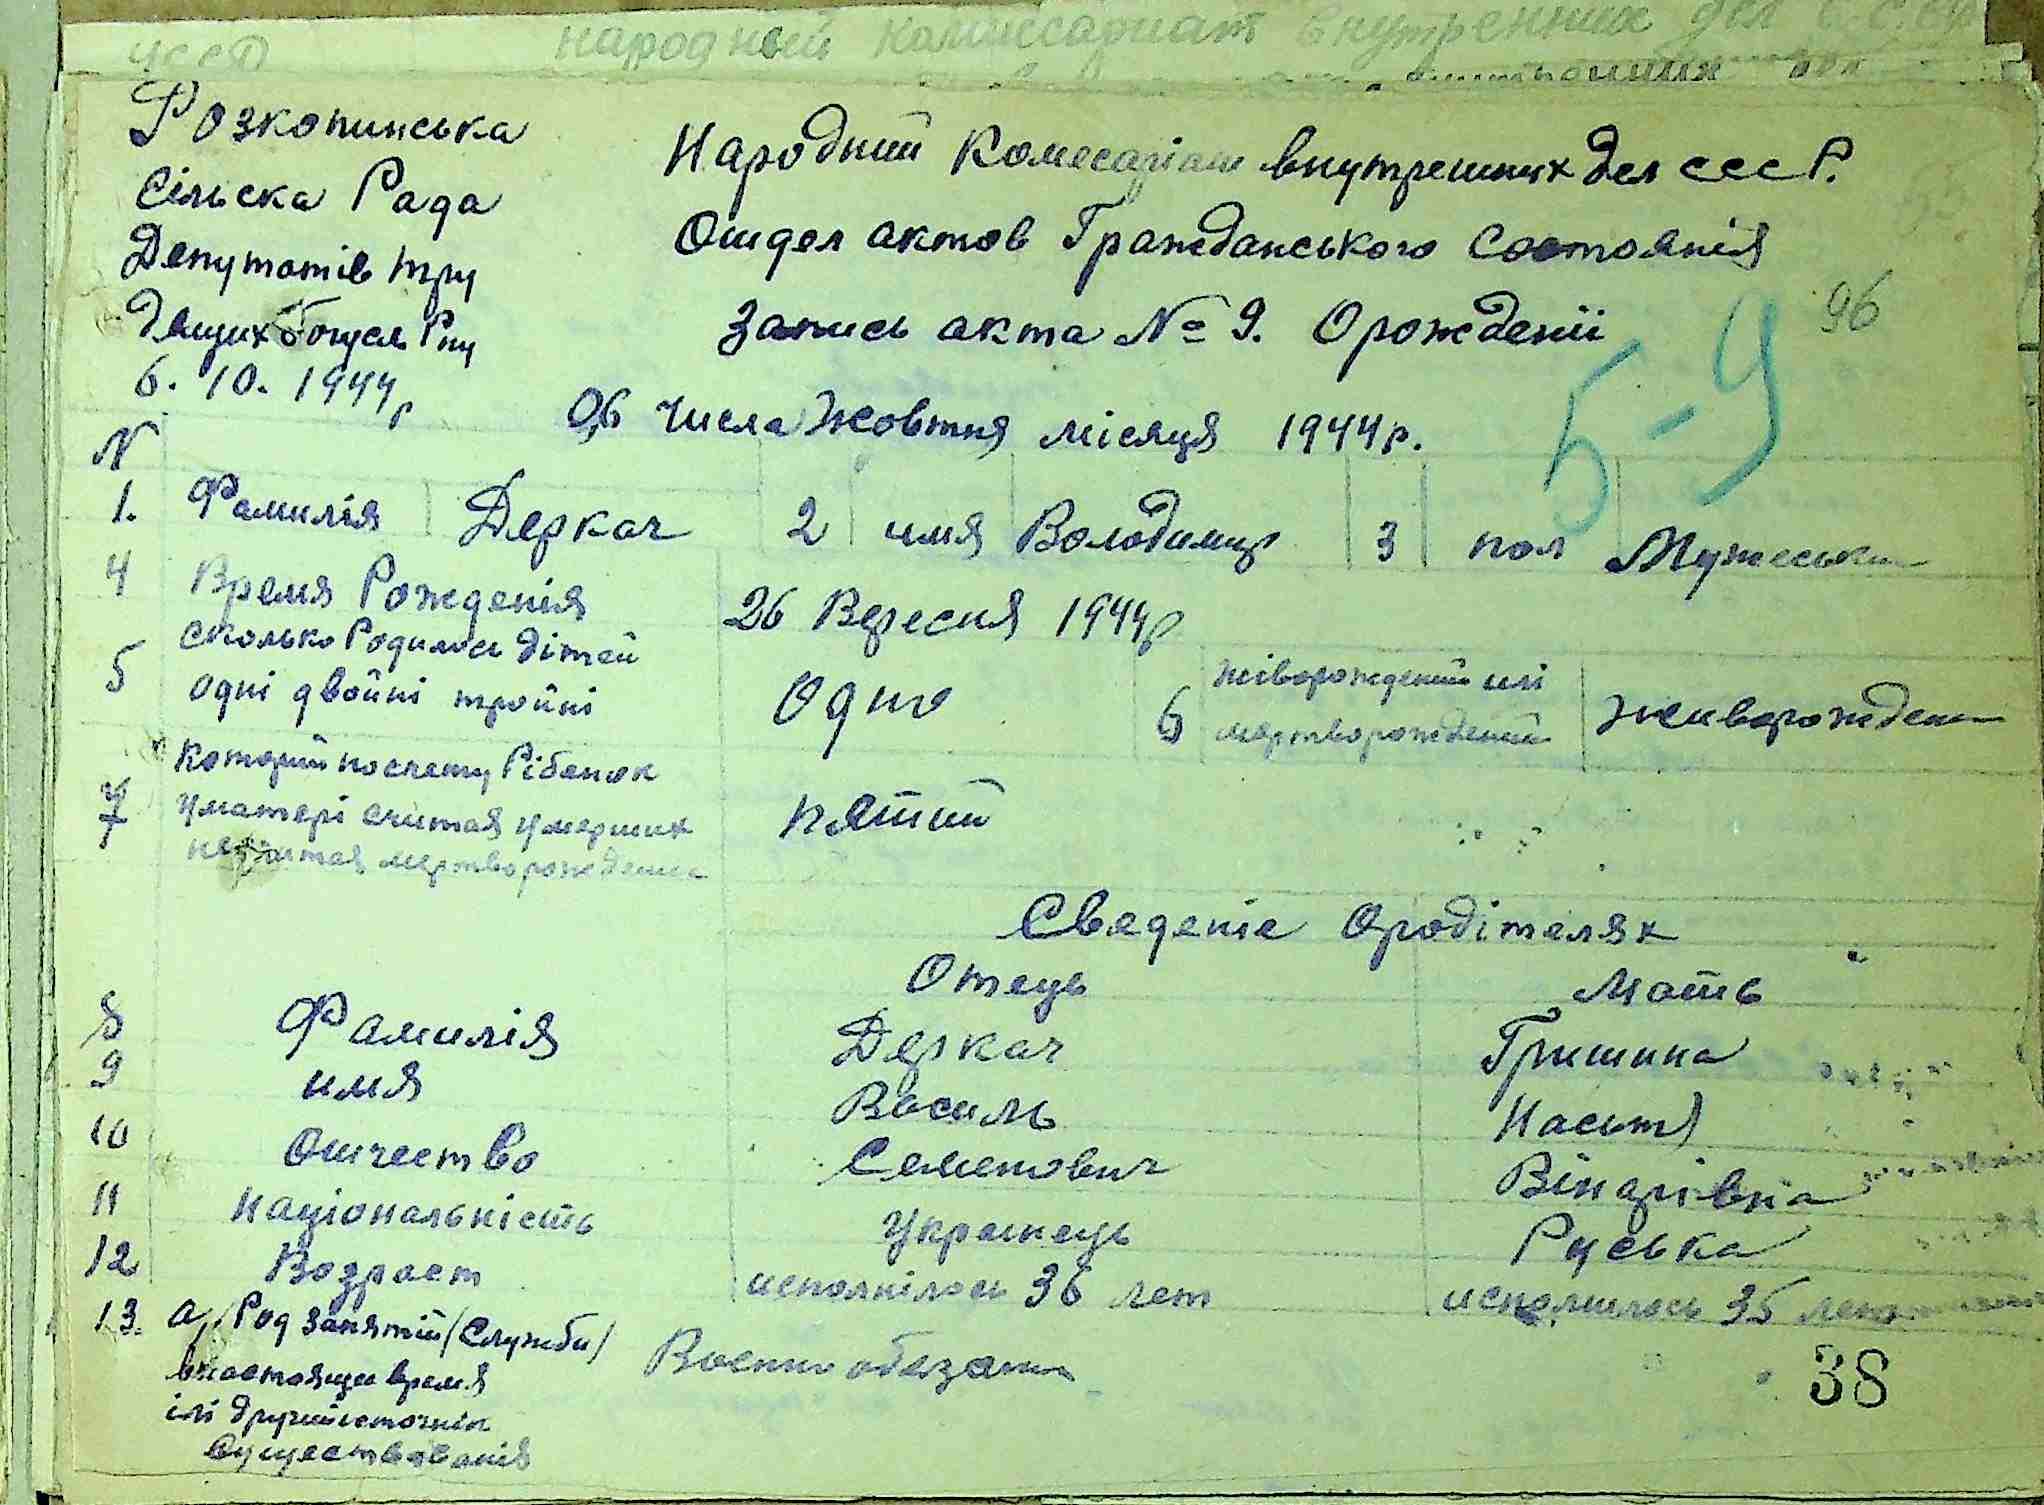 УССР народный комиссариат внутренних дел С.С.С.Р
Розкопинська
Сільска Рада
Депутатів тру
дящих Богусл. Рну
6. 10. 1944р
Народний Комесаріат внутрешних дел СССР.
Отдел актов Гражданського Состоянія
Запись акта № 9. О рожденіі
96
5-9
06 числа Жовтня місяця 1944р.
N
1. Фамилія Деркач 2 имя Володимир 3 пол Мужеськи
4 Время Рожденія 26 Вересня 1944р
5 сколько Родилось дітей
одні двойні тройні Одно 6 живорождений илі
мертворождений живорожден
7 Которий по счету Рібенок
у матері считая умерших
не считая мертворожденних пятий
Сведеніе О родітелях
Отець Мать
8 Фамилія Деркач Гришина
9 имя Василь Настя
10 Отчество Семенович
11 Національність Украінець Руська
12 Возраст исполнілось 36 лет исполнилось 35 лет
13. а, Род занятій (Служби)
в настоящее время
ілі другий источнік
существованія Военнообязан
38